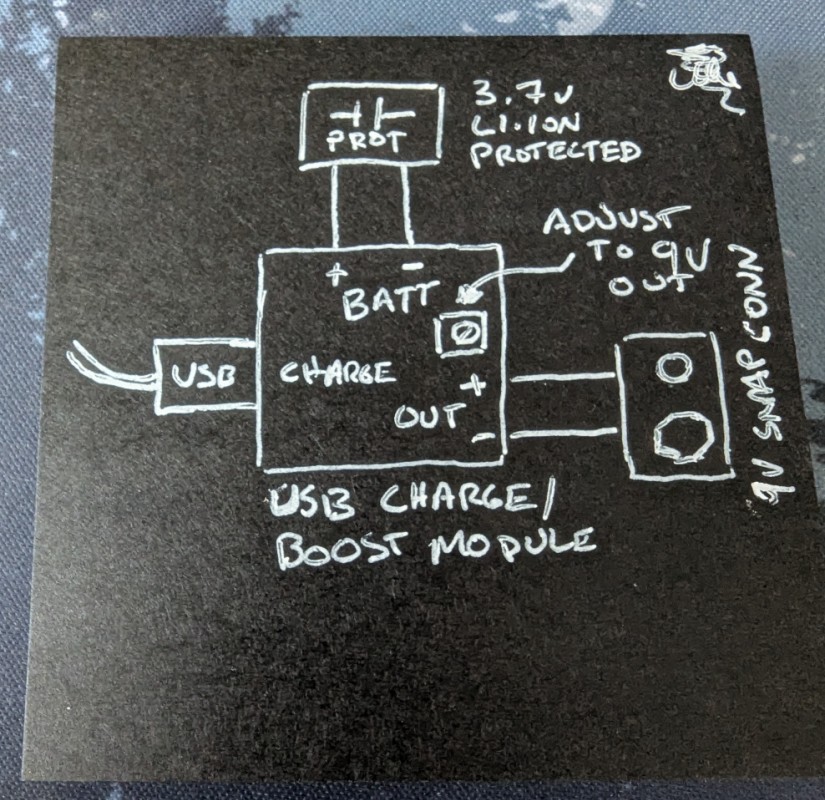 3.7V
LI.ION
PROTECTED
PROT
ADJUST
TO 9V
OUT
+ -
BATT
USB
CHARGE
+
OUT
-
9V SNAP CONN
USB CHARGE/
BOOST MODULE